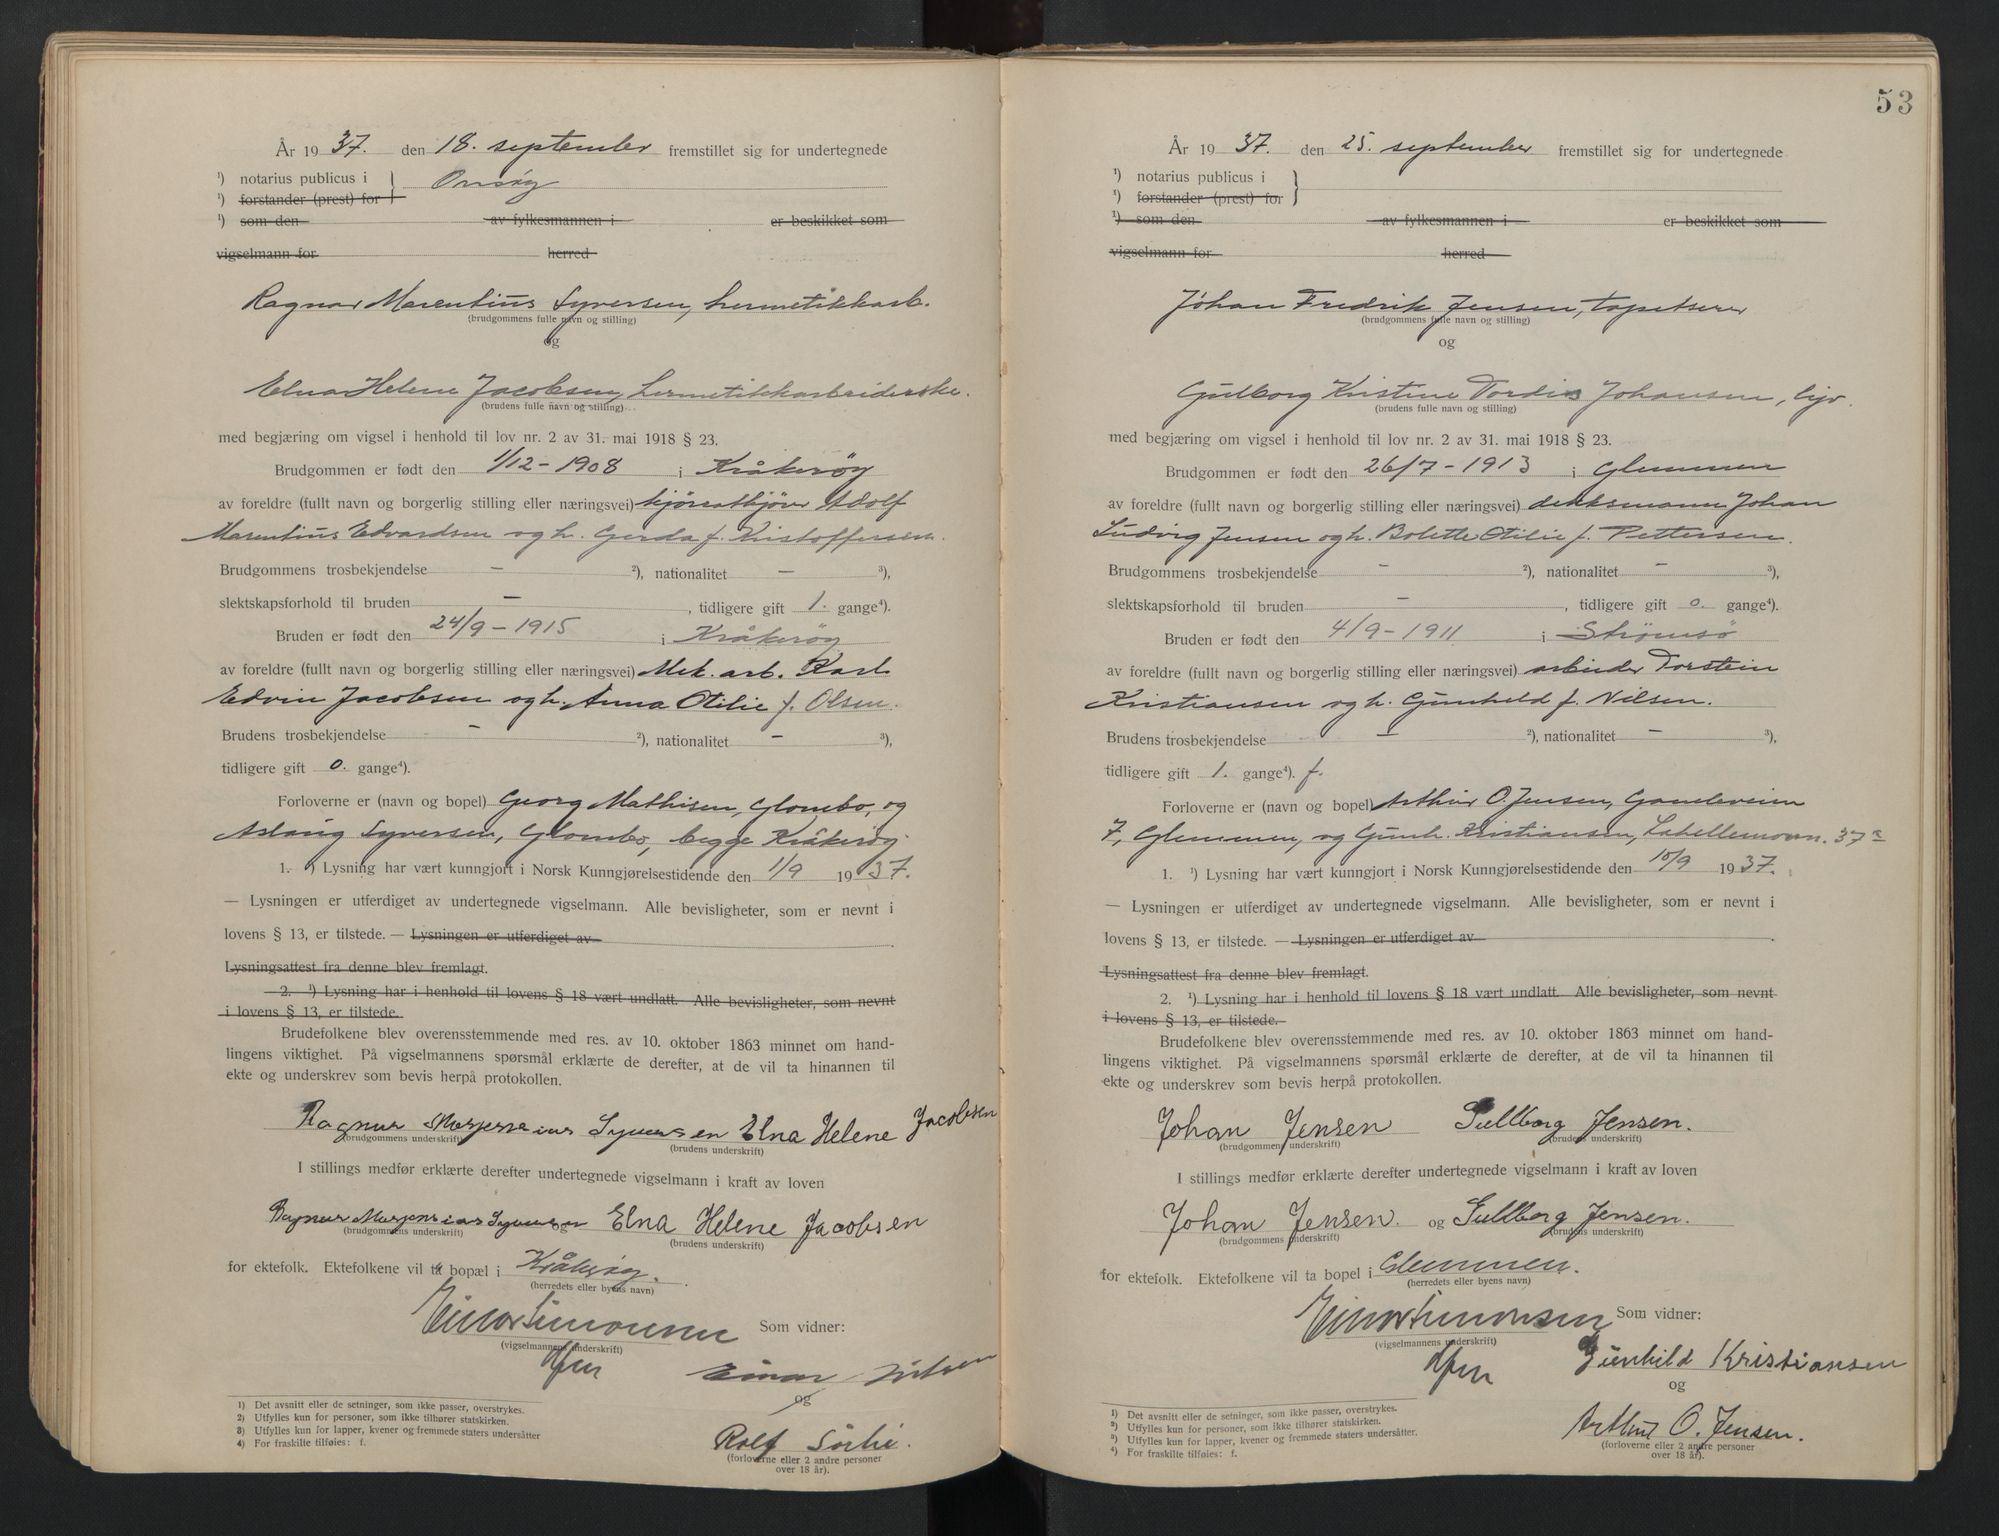 År 1937. den 18. september fremstillet sig for undertegnede
¹) notarius publicus i } Onsøy
¹) forstander (prest) for
¹) som den av fylkesmannen i er beskikket som
vigselmann for herred
Ragnar Marentius Syversen, hermetikkarb.
(brudgommens fulle navn og stilling)
og
Elna Helene Jacobsen, hermetikkarbeiderske.
(brudens fulle navn og stilling)
med begjæring om vigsel i henhold til lov nr. 2 av 31. mai 1918 § 23.
Brudgommen er født den 1/12-1908 i Kråkerøy
av foreldre (fullt navn og borgerlig stilling eller næringsvei) Adolf
Marentius Edvardsen og h. Gerda f. Kristoffersen.
Brudgommens trosbekjendelse - ²), nationalitet - ³),
slektskapsforhold til bruden - , tidligere gift 1. gange⁴).
Bruden er født den 24/9-1915 i Kråkerøy
av foreldre (fullt navn og borgerlig stilling eller næringsvei) Mek. arb. Karl
Edvin Jacobsen og h. Anna Otilie f. Olsen.
Brudens trosbekjendelse - ²), nationalitet - ³),
tidligere gift 0. gange⁴).
Forloverne er (navn og bopel) Georg Mathisen, Glombo, og
Aslaug Syversen, Glombo, begge Kråkerøy
1. ¹) Lysning har vært kunngjort i Norsk Kunngjørelsestidende den 1/9 1937.
— Lysningen er utferdiget av undertegnede vigselmann. Alle bevisligheter, som er nevnt i
lovens § 13, er tilstede. — Lysningen er utferdiget av
Lysningsattest fra denne blev fremlagt.
2. ¹) Lysning har i henhold til lovens § 18 vært undlatt. Alle bevisligheter, som nevnt
i lovens § 13, er tilstede.
Brudefolkene blev overensstemmende med res. av 10. oktober 1863 minnet om hand-
lingens viktighet. På vigselmannens spørsmål erklærte de derefter, at de vil ta hinannen til
ekte og underskrev som bevis herpå protokollen.
Ragnar Syversen Elna Helene Jacobsen
(brudgommens underskrift) (brudens underskrift)
I stillings medfør erklærte derefter undertegnede vigselmann i kraft av loven
Ragnar Syversen og Elna Helene Jacobsen
(brudgommens underskrift) (brudens underskrift)
for ektefolk. Ektefolkene vil ta bopæl i Kråkerøy.
(herredets eller byens navn)
Einar Simonsen Som vidner:
(vigselmannens underskrift)
Einar
og
Rolf Sørli.
(forloverne eller 2 andre personer
over 18 år).
1) Det avsnitt eller de setninger, som ikke passer, overstrykes.
2) Utfylles kun for personer, som ikke tilhører statskirken.
3) Utfylles kun for lapper, kvener og fremmede staters undersåtter
4) For fraskilte tilføies: f.
53
År 1937. den 25. september fremstillet sig for undertegnede
¹) notarius publicus i }
¹) forstander (prest) for
¹) som den av fylkesmannen i er beskikket som
vigselmann for herred
Johan Fredrik Jensen, tapetserer
(brudgommens fulle navn og stilling)
og
Gulborg Kristine Tordis Johansen, hjv.
(brudens fulle navn og stilling)
med begjæring om vigsel i henhold til lov nr. 2 av 31. mai 1918 § 23.
Brudgommen er født den 26/7-1913 i Glemmen
av foreldre (fullt navn og borgerlig stilling eller næringsvei) dekksmann Johan
Ludvig Jensen og h. Bolette Otilie f. Pettersen.
Brudgommens trosbekjendelse - ²), nationalitet - ³),
slektskapsforhold til bruden - , tidligere gift 0. gange⁴).
Bruden er født den 4/9-1911 i Strømsø
av foreldre (fullt navn og borgerlig stilling eller næringsvei) arbeider Torstein
Kristiansen og h. Gunhild f. Nilsen.
Brudens trosbekjendelse - ²), nationalitet - ³),
tidligere gift 1. gange⁴). f.
Forloverne er (navn og bopel) Arthur O. Jensen, Gamleveien
7, Glemmen, og Gunh. Kristiansen, Labellemovn. 37ᵃ
1. ¹) Lysning har vært kunngjort i Norsk Kunngjørelsestidende den 10/9 1937.
— Lysningen er utferdiget av undertegnede vigselmann. Alle bevisligheter, som er nevnt i
lovens § 13, er tilstede. — Lysningen er utferdiget av
Lysningsattest fra denne blev fremlagt.
2. ¹) Lysning har i henhold til lovens § 18 vært undlatt. Alle bevisligheter, som nevnt
i lovens § 13, er tilstede.
Brudefolkene blev overensstemmende med res. av 10. oktober 1863 minnet om hand-
lingens viktighet. På vigselmannens spørsmål erklærte de derefter, at de vil ta hinannen til
ekte og underskrev som bevis herpå protokollen.
Johan Jensen Gullborg Jensen.
(brudgommens underskrift) (brudens underskrift)
I stillings medfør erklærte derefter undertegnede vigselmann i kraft av loven
Johan Jensen. og Gullborg Jensen.
(brudgommens underskrift) (brudens underskrift)
for ektefolk. Ektefolkene vil ta bopel i Glemmen.
(herredets eller byens navn)
Einar Simonsen Som vidner:
(vigselmannens underskrift)
Gunhild Kristiansen
og
Arthur O. Jensen.
(forloverne eller 2 andre personer
over 18 år).
1) Det avsnitt eller de setninger, som ikke passer, overstrykes.
2) Utfylles kun for personer, som ikke tilhører statskirken.
3) Utfylles kun for lapper, kvener og fremmede staters undersåtter.
4) For fraskilte tilføies: f.